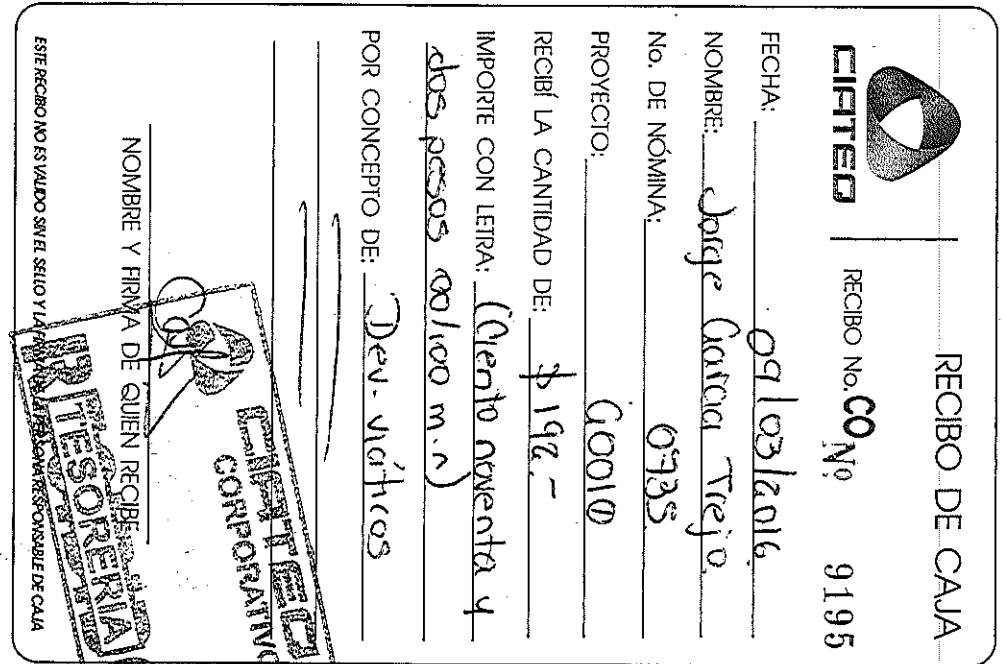 RECIBO DE CAJA
CIATEQ
RECIBO No. CO Nº 9195
FECHA: 09/03/2016
NOMBRE: Jorge Garcia Trejo
No. DE NÓMINA: 0735
PROYECTO: G0010
RECIBÍ LA CANTIDAD DE: $ 192.-
IMPORTE CON LETRA: (Ciento noventa y
dos pesos 00/100 m.n)
POR CONCEPTO DE: Dev. viáticos
CIATEQ
CORPORATIVO
NOMBRE Y FIRMA DE QUIEN RECIBE
TESORERIA
ESTE RECIBO NO ES VALIDO SIN EL SELLO Y LA FIRMA DE LA PERSONA RESPONSABLE DE CAJA